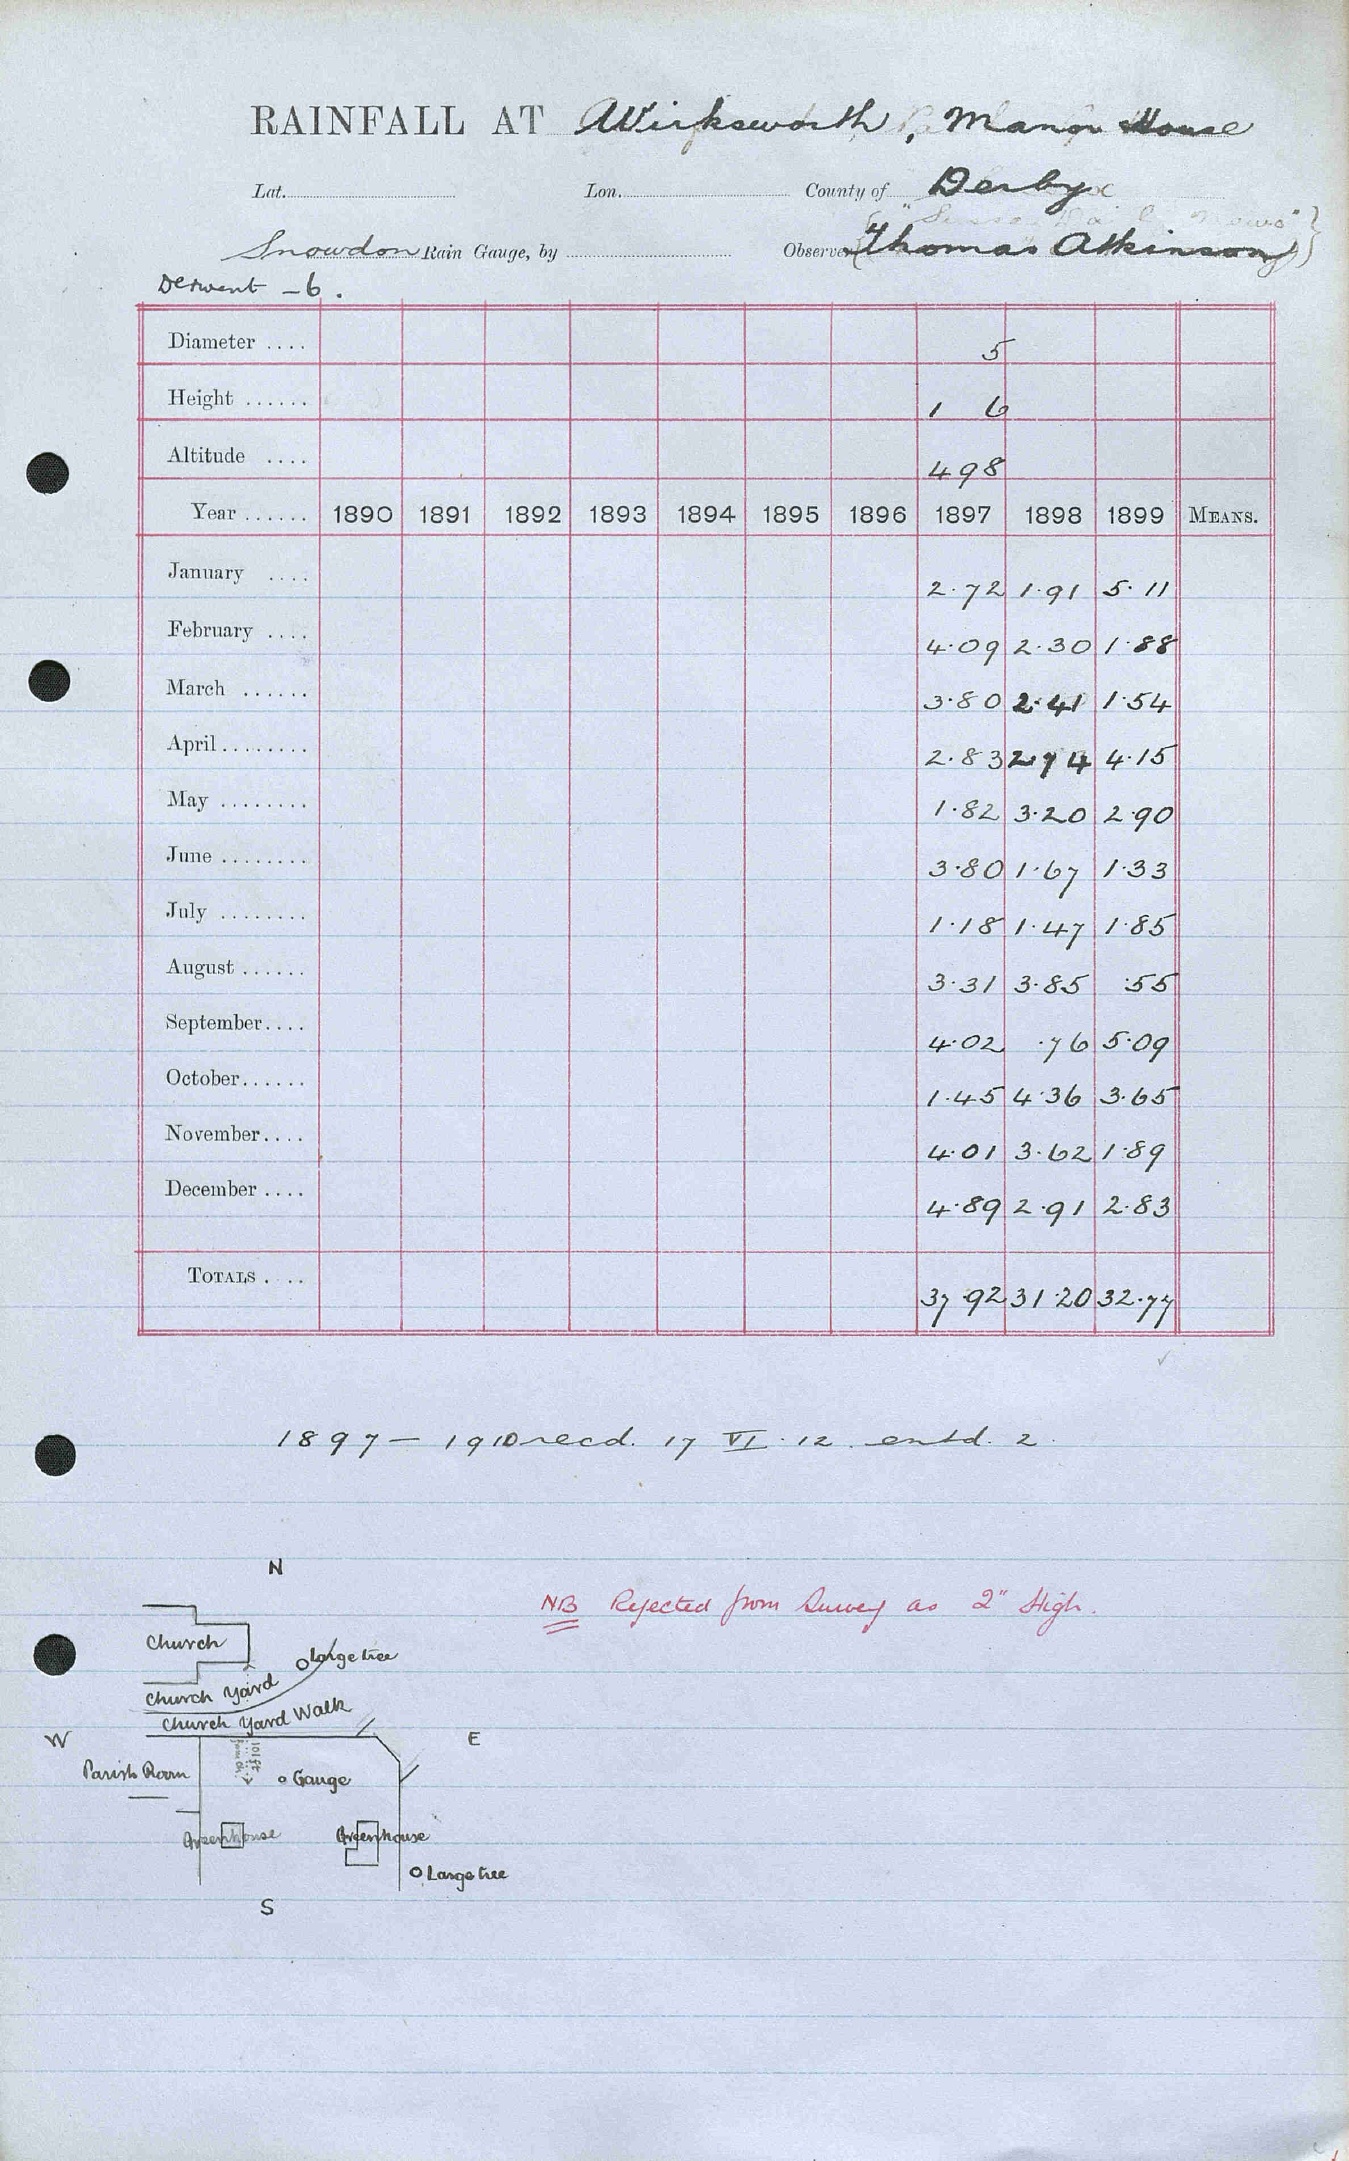 RAINFALL AT Wirksworth, Manor House
Lat. Lon. County of Derby
Snowdon Rain Gauge, by Observer Thomas Atkinson
Derwent - 6.
Diameter .... 5
Height ...... 1 6
Altitude .... 498
Year ...... 1890 1891 1892 1893 1894 1895 1896 1897 1898 1899 MEANS.
January .... 2.72 1.91 5.11
February .... 4.09 2.30 1.88
March ...... 3.80 2.41 1.54
April ........ 2.83 2.74 4.15
May ........ 1.82 3.20 2.90
June ........ 3.80 1.67 1.33
July ........ 1.18 1.47 1.85
August ...... 3.31 3.85 .55
September.... 4.02 .76 5.09
October...... 1.45 4.36 3.65
November.... 4.01 3.62 1.89
December .... 4.89 2.91 2.83
TOTALS . .. 37.92 31.20 32.77
1897 - 1910 recd. 17 VI. 12. entd. 2.
N
NB Rejected from Survey as 2" High.
Church
Large tree
Church Yard
Church Yard Walk
W
E
101 ft
Parish Room
Gauge
Greenhouse
Greenhouse
Large tree
S